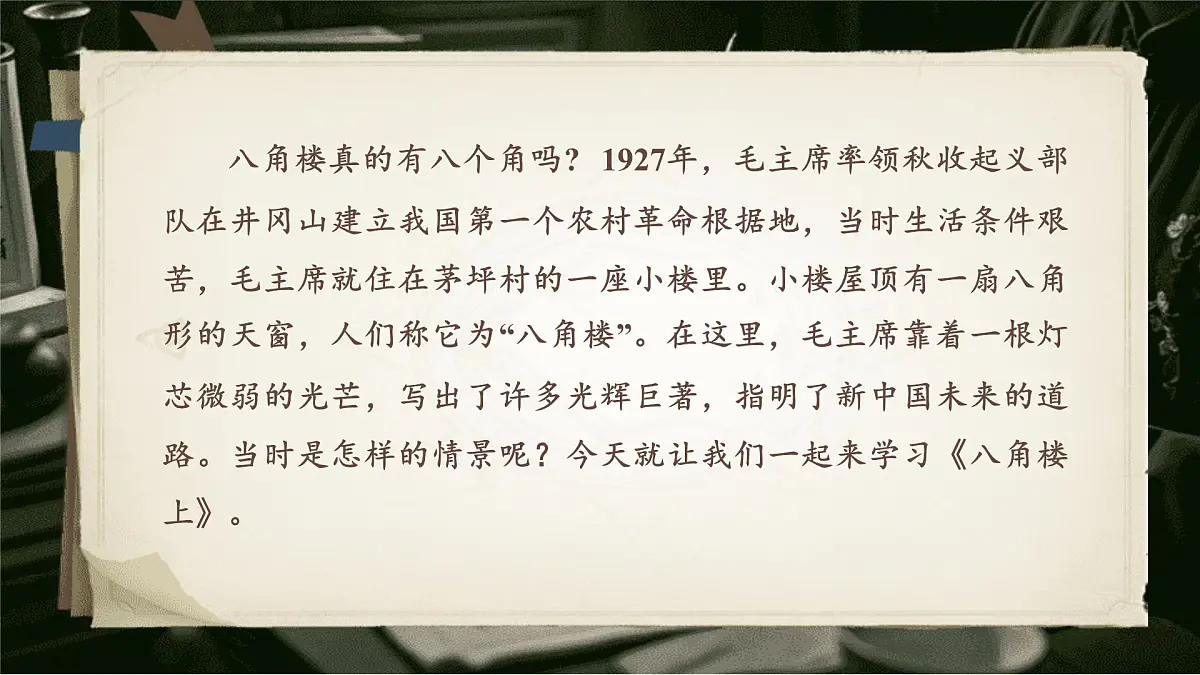 八角楼真的有八个角吗？1927年，毛主席率领秋收起义部
队在井冈山建立我国第一个农村革命根据地，当时生活条件艰
苦，毛主席就住在茅坪村的一座小楼里。小楼屋顶有一扇八角
形的天窗，人们称它为“八角楼”。在这里，毛主席靠着一根灯
芯微弱的光芒，写出了许多光辉巨著，指明了新中国未来的道
路。当时是怎样的情景呢？今天就让我们一起来学习《八角楼
上》。